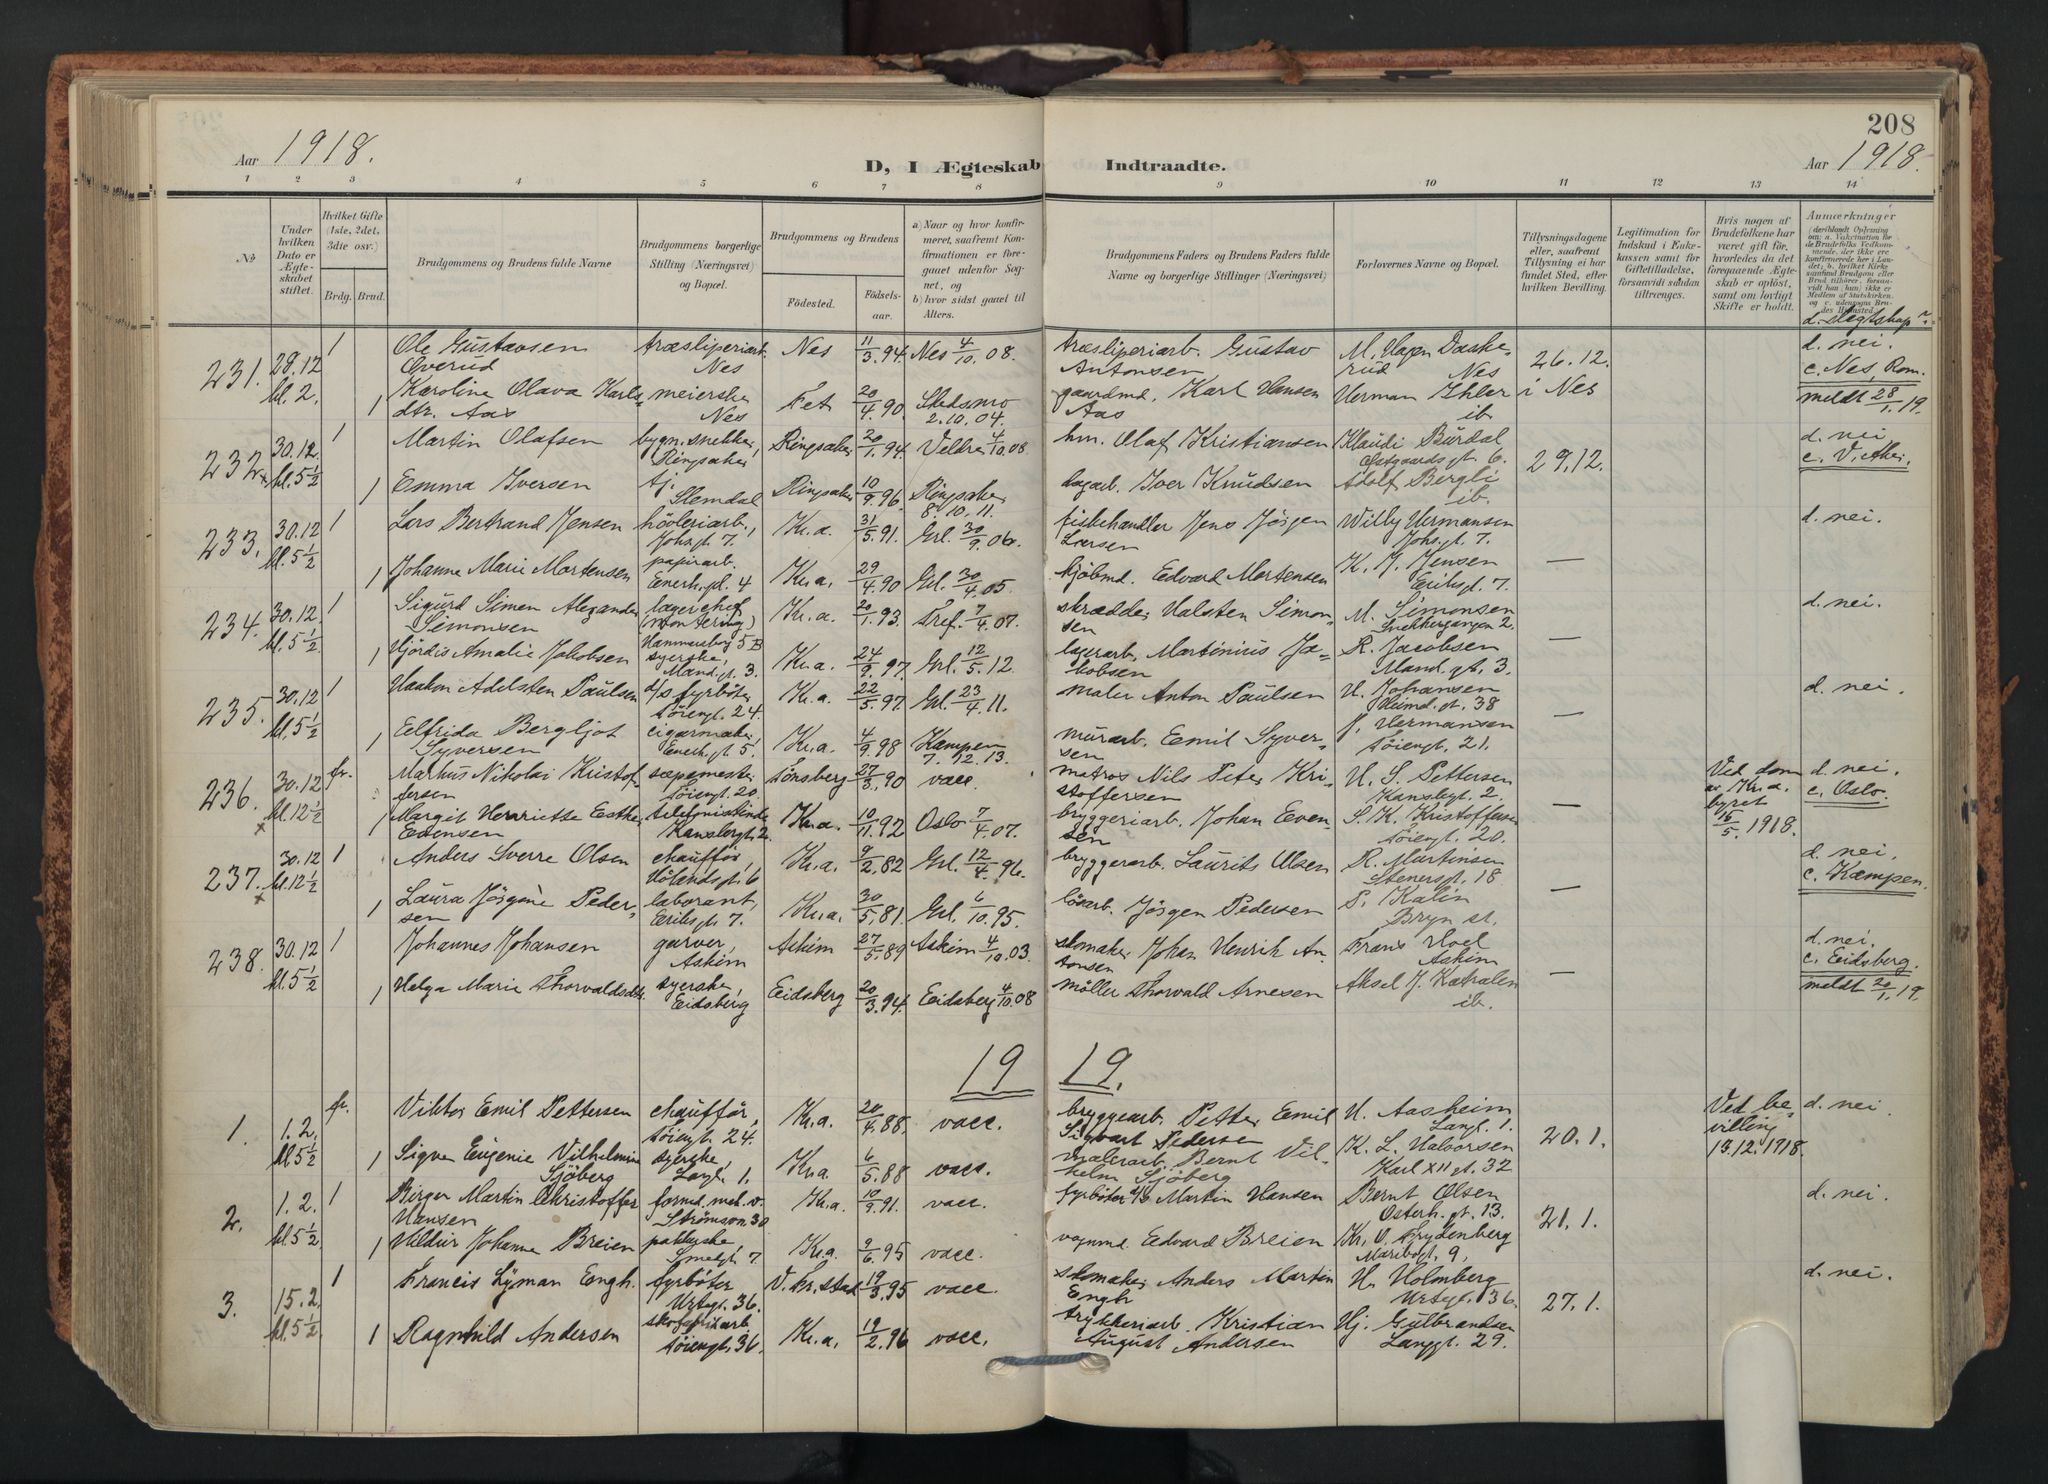 208
Aar 1918.
D, I Ægteskab Indtraadte.
Aar 1918.
1 2 3 4 5 6 7 8 9 10 11 12 13 14
No
Under hvilken Dato er Ægteskabet stiftet.
Hvilket Gifte (1ste, 2det, 3die osv.)
Brdg. Brud.
Brudgommens og Brudens fulde Navne
Brudgommens borgerlige Stilling (Næringsvei) og Bopæl.
Brudgommens og Brudens
Fødested.
Fødselsaar.
a) Naar og hvor konfirmeret, saafremt Konfirmationen er foregaaet udenfor Sognet, og
b) hvor sidst gaaet til Alters.
Brudgommens Faders og Brudens Faders fulde Navne og borgerlige Stillinger (Næringsvei)
Forlovernes Navne og Bopæl.
Tillysningsdagene eller, saafremt Tillysning ei har fundet Sted, efter hvilken Bevilling.
Legitimation for Indskud i Enkekassen samt for Giftetilladelse, forsaavidt saadan tiltrænges.
Hvis nogen af Brudefolkene har været gift før, hvorledes da det foregaaende Ægteskab er opløst, samt om lovligt Skifte er holdt.
Anmærkninger
d. slegtskap
231. 28.12 kl. 2. 1 Ole Gustavsen Overud træsliperiarb. Nes Nes 11/3.94. Nes 4/10.08. træsliperiarb. Gustav Antonsen M. Hagen Daskerud Nes 26.12. i Nes d. nei. c. Nes, Rom.
1 Karoline Olava Karlsdtr. Aas meierske Nes Fet 20/4.90 Skedsmo 2.10.04. gaardmd. Karl Hansen Aas Herman Ihler ib meldt 28/1.19.
232. x 30.12. kl. 5 1/2 1 Martin Olafsen bygn.snekker, Ringsaker Ringsaker 20/1.94. Veldre 4/10.08 hm. Olaf Kristiansen Klaudi Burdal Østgaardsgt. 6. 29.12. d. nei c. V. Aker.
1 Emma Iversen tj. Slemdal Ringsaker 10/9.96. Ringsaker 8.10.11. dagarb. Iver Knudsen Adolf Bergli ib.
233. 30.12 kl. 5 1/2 1 Lars Bertrand Jensen høvleriarb., Johsgt. 7. Kr.a. 31/5.91. Grl. 30/9.06. fiskehandler Jens Jørgen Larsen Willy Hermansen Johs.gt. 7. — d. nei.
1 Johanne Marie Mortensen papirarb. Enerh.pl. 4 Kr.a. 29/4.90 Grl. 30/4.05. kjøbmd. Edvard Mortensen K. J. Jensen Eriksgt. 7.
234. 30.12. kl. 5 1/2 1 Sigurd Simen Alexander Simonsen lagerchef (montering) Hammersborg 5 B Kr.a. 20/1.93. Tref. 7/4.07. skrædder Halsten Simonsen M. Simonsen Snekkergangen 2. — d. nei.
1 Hjørdis Amalie Jakobsen syerske, Mand.gt. 3. Kr.a. 24/9.97. Grl. 12/5.12. lagerarb. Martinius Jakobsen R. Jacobsen Mand.gt. 3.
235. 30.12 kl. 5 1/2 1 Haakon Adelsten Paulsen d/s fyrbøter Tøiengt. 24. Kr.a. 22/5.97. Grl. 23/4.11. maler Anton Paulsen H. Johansen Heimd.gt. 38 — d. nei.
1 Elfrida Bergljot Syversen cigarmaker, Enerh.gt. 5. Kr.a. 4/9.98 Kampen 7.12.13. murarb. Emil Syversen J. Hermansen Tøiengt. 21.
236. x 30.12 kl. 12 1/2 fr. Markus Nikolai Kristoffersen sæpemester Tøiengt. 20 Tønsberg 27/3.90 vacc. matros Nils Peter Kristoffersen H. S. Pettersen Kanslergt. 2. — Ved dom av Kr.a. byret 15/5.1918. d. nei. c. Oslo.
1 Margit Henriette Esther Evensen telefonistinde Kanslergt. 2. Kr.a. 10/11.92 Oslo 7/4.07. bryggeriarb. Johan Evensen S. K. Kristoffersen Tøiengt. 20.
237. x 30.12 kl. 12 1/2 1 Anders Sverre Olsen chauffør, Hølandsgt. 6 Kr.a. 9/2.82 Grl. 12/4.96. bryggerarb. Laurits Olsen R. Martinsen Stenersgt. 18. — d. nei. c. Kampen.
1 Laura Jørgine Pedersen laborant, Eriksgt. 7. Kr.a. 30/5.81 Grl. 6/10.95. løsarb. Jørgen Pedersen P. Kalin Bryn st.
238. 30.12 kl. 5 1/2 1 Johannes Johansen garver, Askim Askim 27/5.89 Askim 4/10.03. skomaker Johan Henrik Antonsen Frans Hoel Askim — d. nei. c. Eidsberg.
1 Helga Marie Thorvaldsdtr. syerske, Eidsberg Eidsberg 20/3.94. Eidsberg 4/10.08 møller Thorvald Arnesen Aksel J. Katralen ib. meldt 20/1.19.
19 19.
1. 1.2. kl. 5 1/2 fr. Viktor Emil Pettersen chauffør, Tøiengt. 24. Kr.a. 20/4.88. vacc. bryggearb. Petter Emil Sigvart Pedersen H. Aasheim Langt. 1. 20.1. Ved bevilling 13.12.1918. d. nei.
1 Signe Eugenie Vilhelmine Sjöberg syerske, Langt. 1. Kr.a. 6/5.88 vacc. malerarb. Bernt Vilhelm Sjöberg K. L. Halvorsen Karl XII gt. 32
2. 1.2. kl. 5 1/2 1 Birger Martin Christoffer Hansen formd. mek. v. Strømsvn. 30 Kr.a. 10/9.91. vacc. fyrbøter d/s Martin Hansen Bernt Olsen Østerh.gt. 13. 21.1. d. nei.
1 Hildur Johanne Breien pakkerske Smedgt. 7 Kr.a. 9/6.95 vacc. vognmd. Edvard Breien Kr. O. Frydenberg Maribogt. 9.
3. 15.2. kl. 5 1/2 1 Francis Lyman Engh. fyrbøter Urtegt. 36. V. Fr.stad 19/3.95 vacc. skomaker Anders Martin Engh H. Holmberg Urtegt. 36. 27.1. d. nei.
1 Ragnhild Andersen skofabrikarb. Tøiengt. 36. Kr.a. 19/2.96 vacc. trykkeriarb. Kristian August Andersen Hj. Gulbrandsen Langgt. 29.